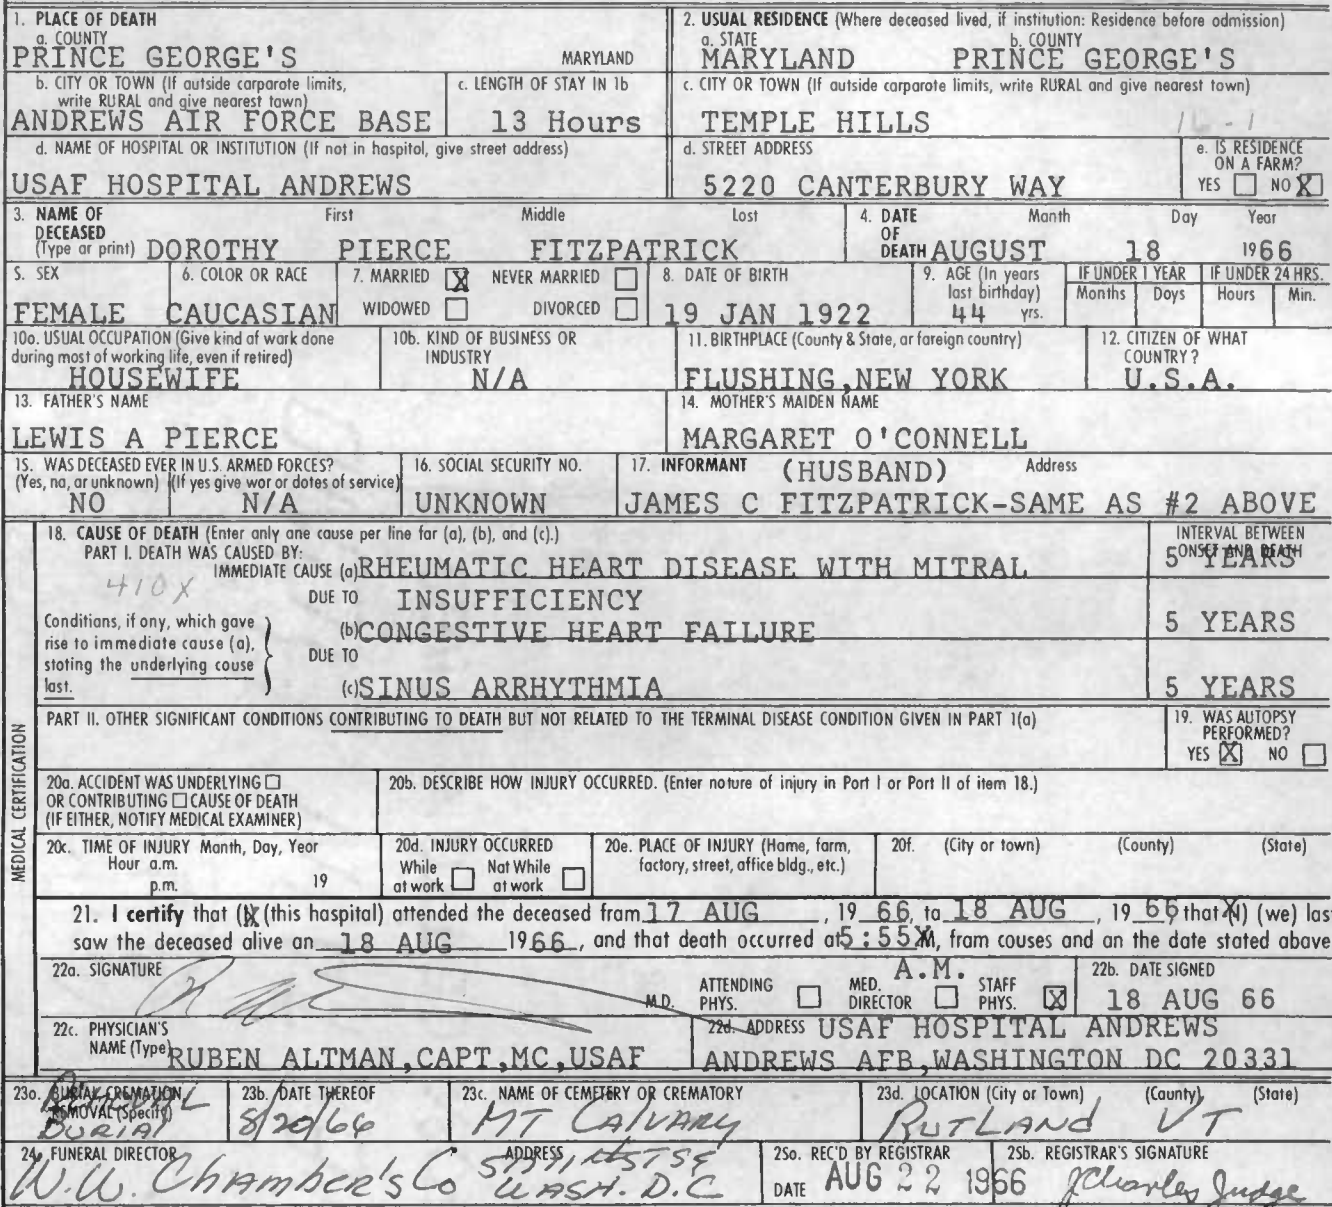 1. PLACE OF DEATH
a. COUNTY
PRINCE GEORGE'S MARYLAND
2. USUAL RESIDENCE (Where deceased lived, if institution: Residence before admission)
a. STATE b. COUNTY
MARYLAND PRINCE GEORGE'S
b. CITY OR TOWN (If outside corporate limits,
write RURAL and give nearest town)
ANDREWS AIR FORCE BASE
c. LENGTH OF STAY IN 1b
13 Hours
c. CITY OR TOWN (If outside corporate limits, write RURAL and give nearest town)
TEMPLE HILLS
16-1
d. NAME OF HOSPITAL OR INSTITUTION (If not in hospital, give street address)
USAF HOSPITAL ANDREWS
d. STREET ADDRESS
5220 CANTERBURY WAY
e. IS RESIDENCE
ON A FARM?
YES NO X
3. NAME OF
DECEASED
(Type or print)
First Middle Last
DOROTHY PIERCE FITZPATRICK
4. DATE
OF
DEATH
Month Day Year
AUGUST 18 1966
5. SEX
FEMALE
6. COLOR OR RACE
CAUCASIAN
7. MARRIED X NEVER MARRIED
WIDOWED DIVORCED
8. DATE OF BIRTH
19 JAN 1922
9. AGE (In years
last birthday)
44 yrs.
IF UNDER 1 YEAR
Months Days
IF UNDER 24 HRS.
Hours Min.
10a. USUAL OCCUPATION (Give kind of work done
during most of working life, even if retired)
HOUSEWIFE
10b. KIND OF BUSINESS OR
INDUSTRY
N/A
11. BIRTHPLACE (County & State, or foreign country)
FLUSHING,NEW YORK
12. CITIZEN OF WHAT
COUNTRY?
U.S.A.
13. FATHER'S NAME
LEWIS A PIERCE
14. MOTHER'S MAIDEN NAME
MARGARET O'CONNELL
15. WAS DECEASED EVER IN U.S. ARMED FORCES?
(Yes, no, or unknown) (If yes give war or dates of service)
NO N/A
16. SOCIAL SECURITY NO.
UNKNOWN
17. INFORMANT (HUSBAND) Address
JAMES C FITZPATRICK-SAME AS #2 ABOVE
MEDICAL CERTIFICATION
18. CAUSE OF DEATH (Enter only one cause per line for (a), (b), and (c).)
PART I. DEATH WAS CAUSED BY:
IMMEDIATE CAUSE (a) RHEUMATIC HEART DISEASE WITH MITRAL
410X
DUE TO INSUFFICIENCY
Conditions, if any, which gave
rise to immediate cause (a),
stating the underlying cause
last.
(b) CONGESTIVE HEART FAILURE
DUE TO
(c) SINUS ARRHYTHMIA
INTERVAL BETWEEN
ONSET AND DEATH
5 YEARS
5 YEARS
5 YEARS
PART II. OTHER SIGNIFICANT CONDITIONS CONTRIBUTING TO DEATH BUT NOT RELATED TO THE TERMINAL DISEASE CONDITION GIVEN IN PART 1(a)
19. WAS AUTOPSY
PERFORMED?
YES X NO
20a. ACCIDENT WAS UNDERLYING
OR CONTRIBUTING CAUSE OF DEATH
(IF EITHER, NOTIFY MEDICAL EXAMINER)
20b. DESCRIBE HOW INJURY OCCURRED. (Enter nature of injury in Part I or Part II of item 18.)
20c. TIME OF INJURY Month, Day, Year
Hour a.m.
p.m. 19
20d. INJURY OCCURRED
While at work Not While at work
20e. PLACE OF INJURY (Home, farm,
factory, street, office bldg., etc.)
20f. (City or town) (County) (State)
21. I certify that (X (this hospital) attended the deceased from 17 AUG, 19 66, to 18 AUG, 19 66 that X) (we) las
saw the deceased alive on 18 AUG 1966, and that death occurred at 5:55 XM, from causes and on the date stated above
A.M.
22a. SIGNATURE
M.D.
ATTENDING
PHYS.
MED.
DIRECTOR
STAFF
PHYS. X
22b. DATE SIGNED
18 AUG 66
22c. PHYSICIAN'S
NAME (Type) RUBEN ALTMAN,CAPT,MC,USAF
22d. ADDRESS USAF HOSPITAL ANDREWS
ANDREWS AFB,WASHINGTON DC 20331
23a. BURIAL CREMATION,
REMOVAL (Specify)
BURIAL
23b. DATE THEREOF
8/20/66
23c. NAME OF CEMETERY OR CREMATORY
MT CALVARY
23d. LOCATION (City or Town) (County) (State)
RUTLAND VT
24. FUNERAL DIRECTOR ADDRESS
W.W. Chamber's Co
WASH. D.C
25a. REC'D BY REGISTRAR
DATE AUG 22 1966
25b. REGISTRAR'S SIGNATURE
J Charles Judge